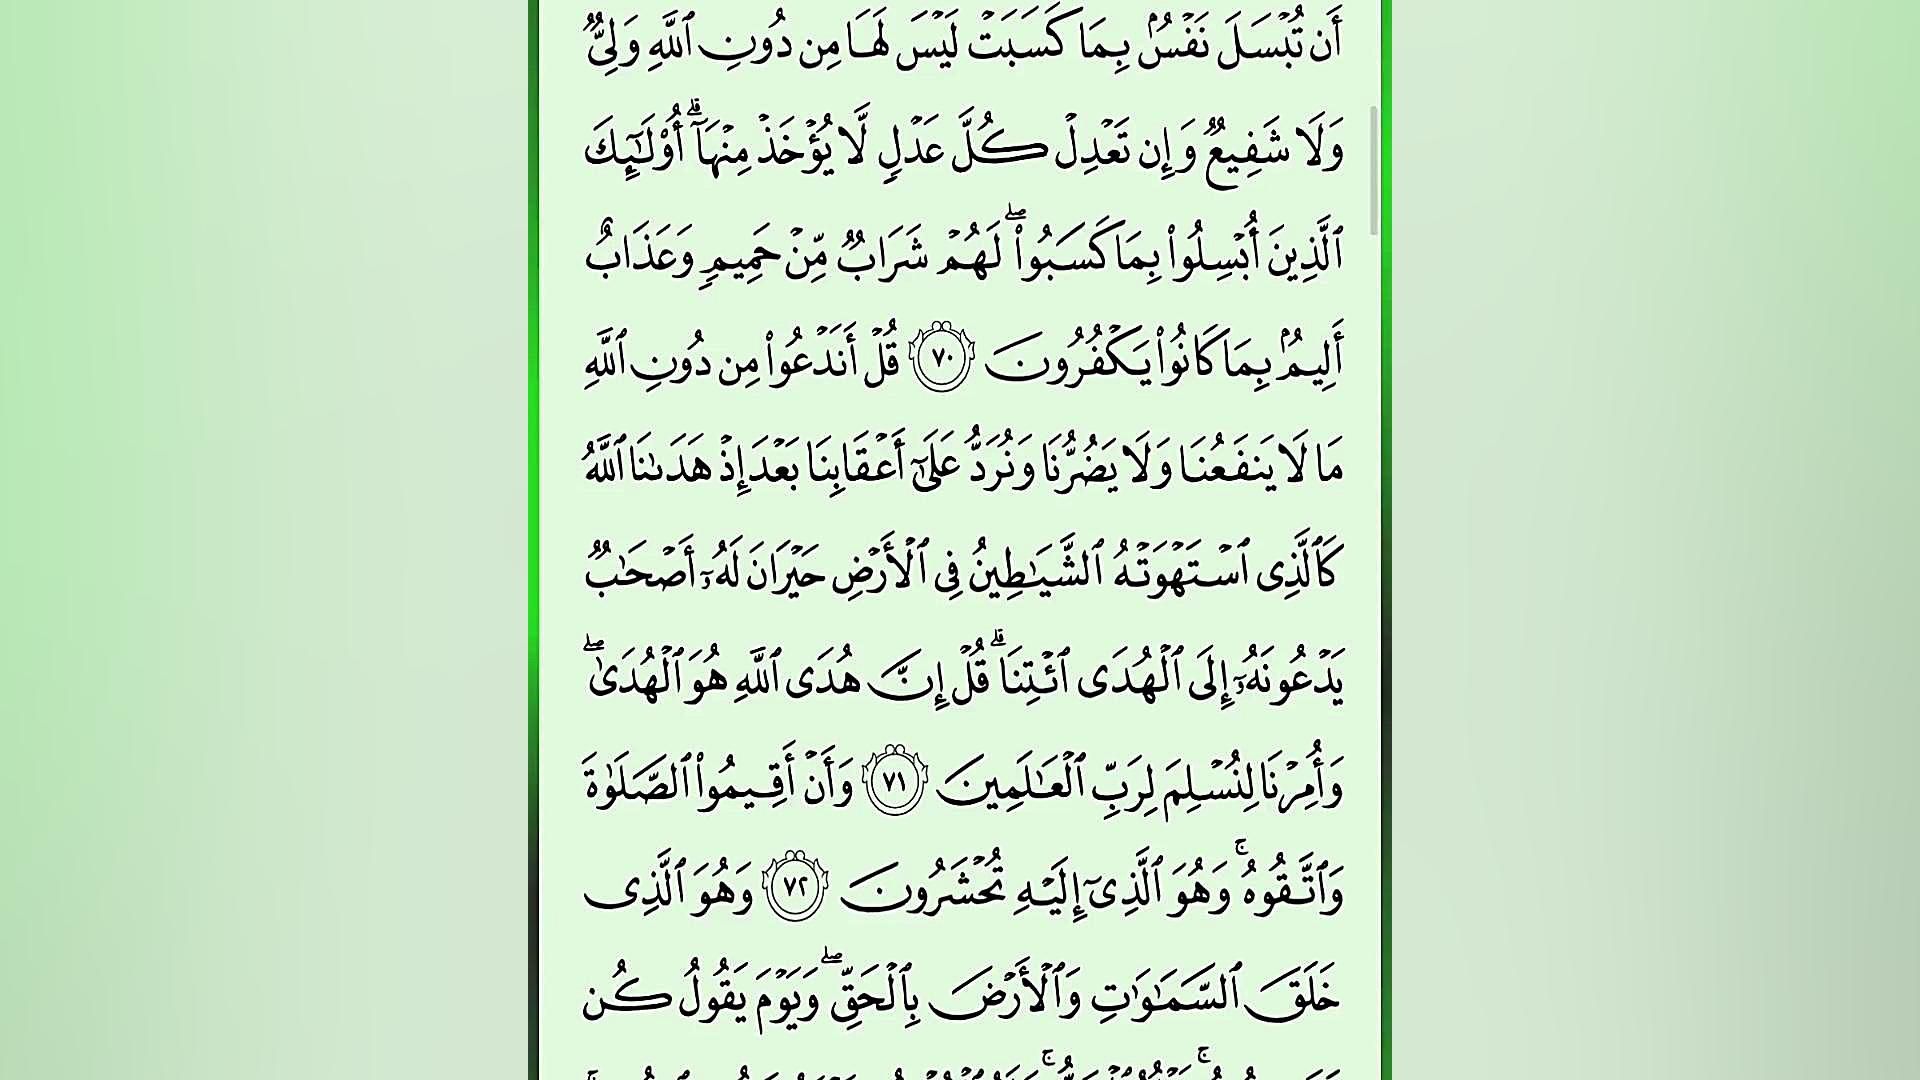 أَن تُبۡسَلَ نَفۡسُۢ بِمَا كَسَبَتۡ لَيۡسَ لَهَا مِن دُونِ ٱللَّهِ وَلِيࣱّ
وَلَا شَفِيعࣱ وَإِن تَعۡدِلۡ كُلَّ عَدۡلࣲ لَّا يُؤۡخَذۡ مِنۡهَآۗ أُوْلَٰٓئِكَ
ٱلَّذِينَ أُبۡسِلُواْ بِمَا كَسَبُواْۖ لَهُمۡ شَرَابࣱ مِّنۡ حَمِيمࣲ وَعَذَابٌ
أَلِيمُۢ بِمَا كَانُواْ يَكۡفُرُونَ ٧٠ قُلۡ أَنَدۡعُواْ مِن دُونِ ٱللَّهِ
مَا لَا يَنفَعُنَا وَلَا يَضُرُّنَا وَنُرَدُّ عَلَىٰٓ أَعۡقَابِنَا بَعۡدَ إِذۡ هَدَىٰنَا ٱللَّهُ
كَٱلَّذِى ٱسۡتَهۡوَتۡهُ ٱلشَّيَٰطِينُ فِى ٱلۡأَرۡضِ حَيۡرَانَ لَهُۥٓ أَصۡحَٰبࣱ
يَدۡعُونَهُۥٓ إِلَى ٱلۡهُدَى ٱئۡتِنَاۗ قُلۡ إِنَّ هُدَى ٱللَّهِ هُوَ ٱلۡهُدَىٰۖ
وَأُمِرۡنَا لِنُسۡلِمَ لِرَبِّ ٱلۡعَٰلَمِينَ ٧١ وَأَنۡ أَقِيمُواْ ٱلصَّلَوٰةَ
وَٱتَّقُوهُۚ وَهُوَ ٱلَّذِىٓ إِلَيۡهِ تُحۡشَرُونَ ٧٢ وَهُوَ ٱلَّذِى
خَلَقَ ٱلسَّمَٰوَٰتِ وَٱلۡأَرۡضَ بِٱلۡحَقِّۖ وَيَوۡمَ يَقُولُ كُن